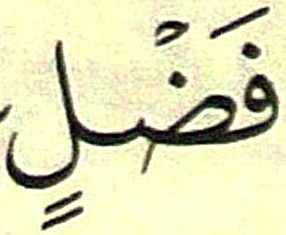 فَضْلٍ